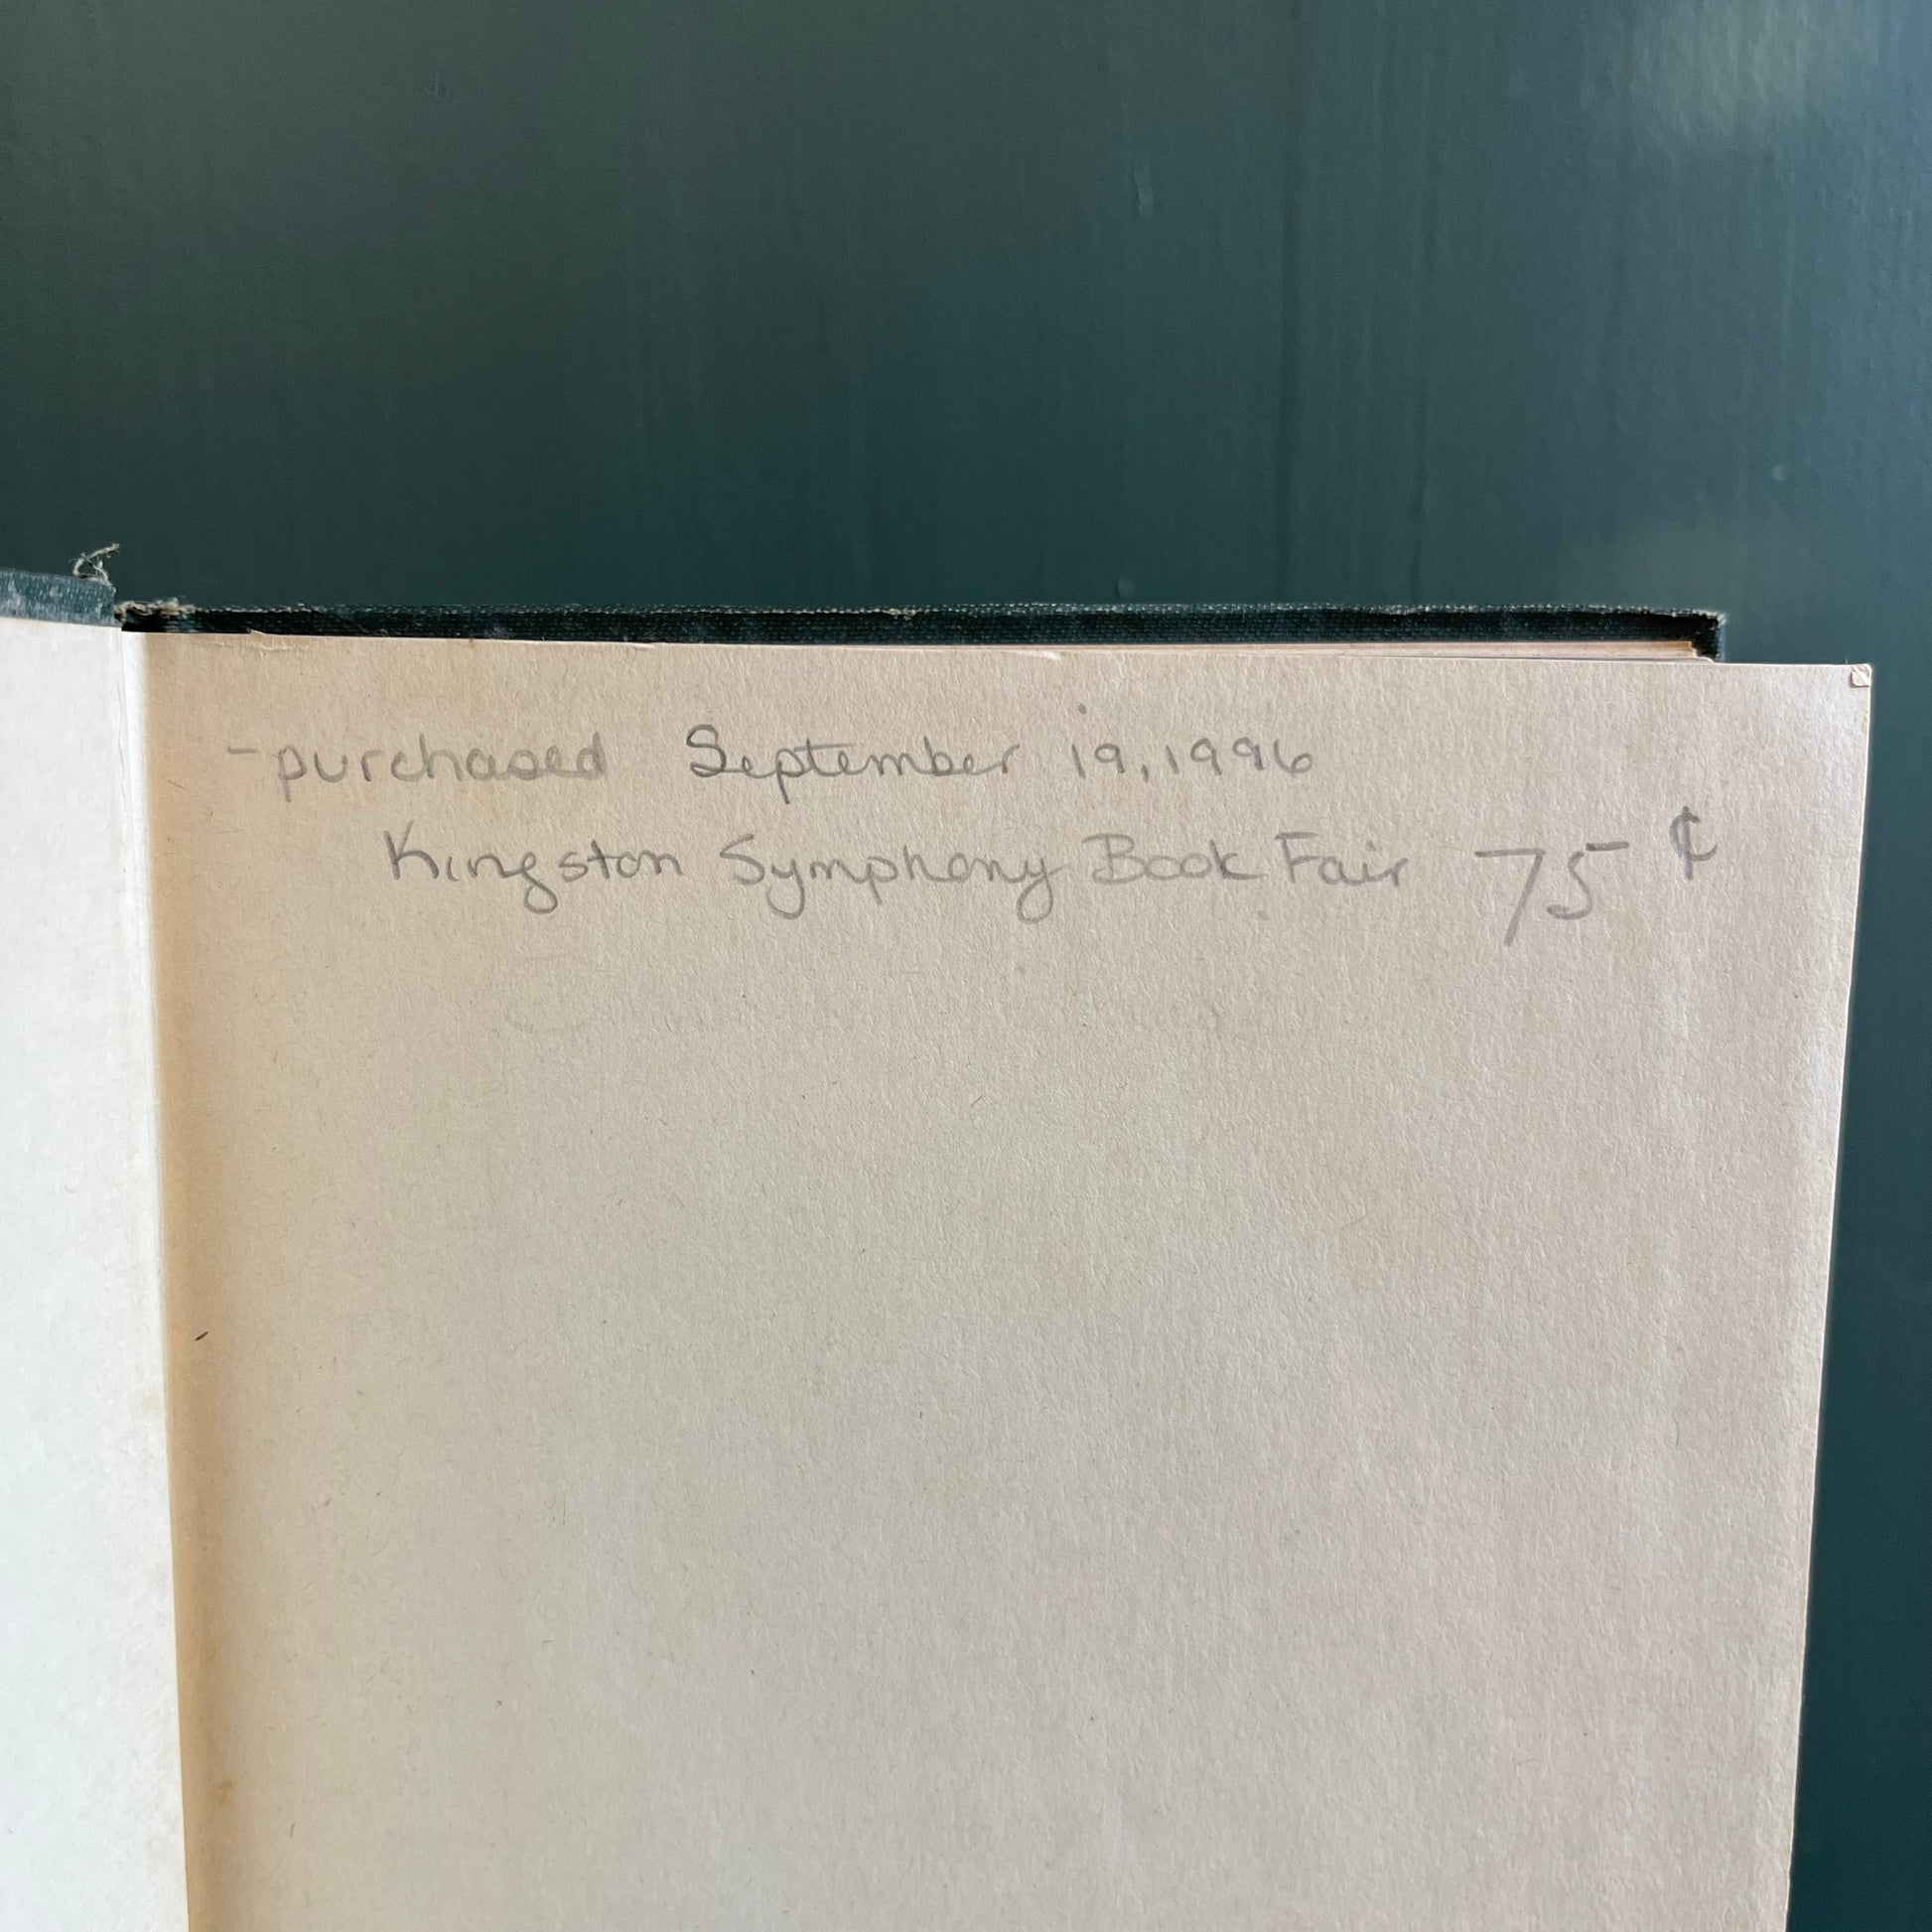 -purchased September 19, 1996
Kingston Symphony Book Fair 75 ¢